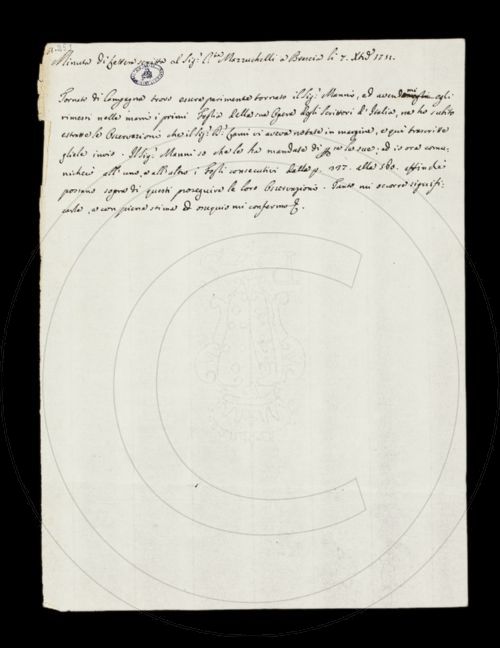 Minuta di Lettera scritta al Sig.r C.te Mazzuchelli a Brescia li 7. Xbre
Tornato di Campagna trovo essere parimente tornato il Sig.r Manni, ed avendomi egli
rimessi nelle mani i primi Foglj della sua Opera degli Scrittori d'Italia, ne ho subito
estratte le Osservazioni che il Sig.r Lami vi aveva notate in margine, e qui trascritte
gliele invio. Il Sig.r Manni so che le ha mandate di le sue, ed io ora comu-
nicherò all'uno, e all'altro i Foglj consecutivi dalla p. 337. alla 360. affinchè
possano sopra di questi proseguire le loro Osservazioni. Tanto mi occorre signifi-
carle, e con piena stima ed ossequio mi confermo